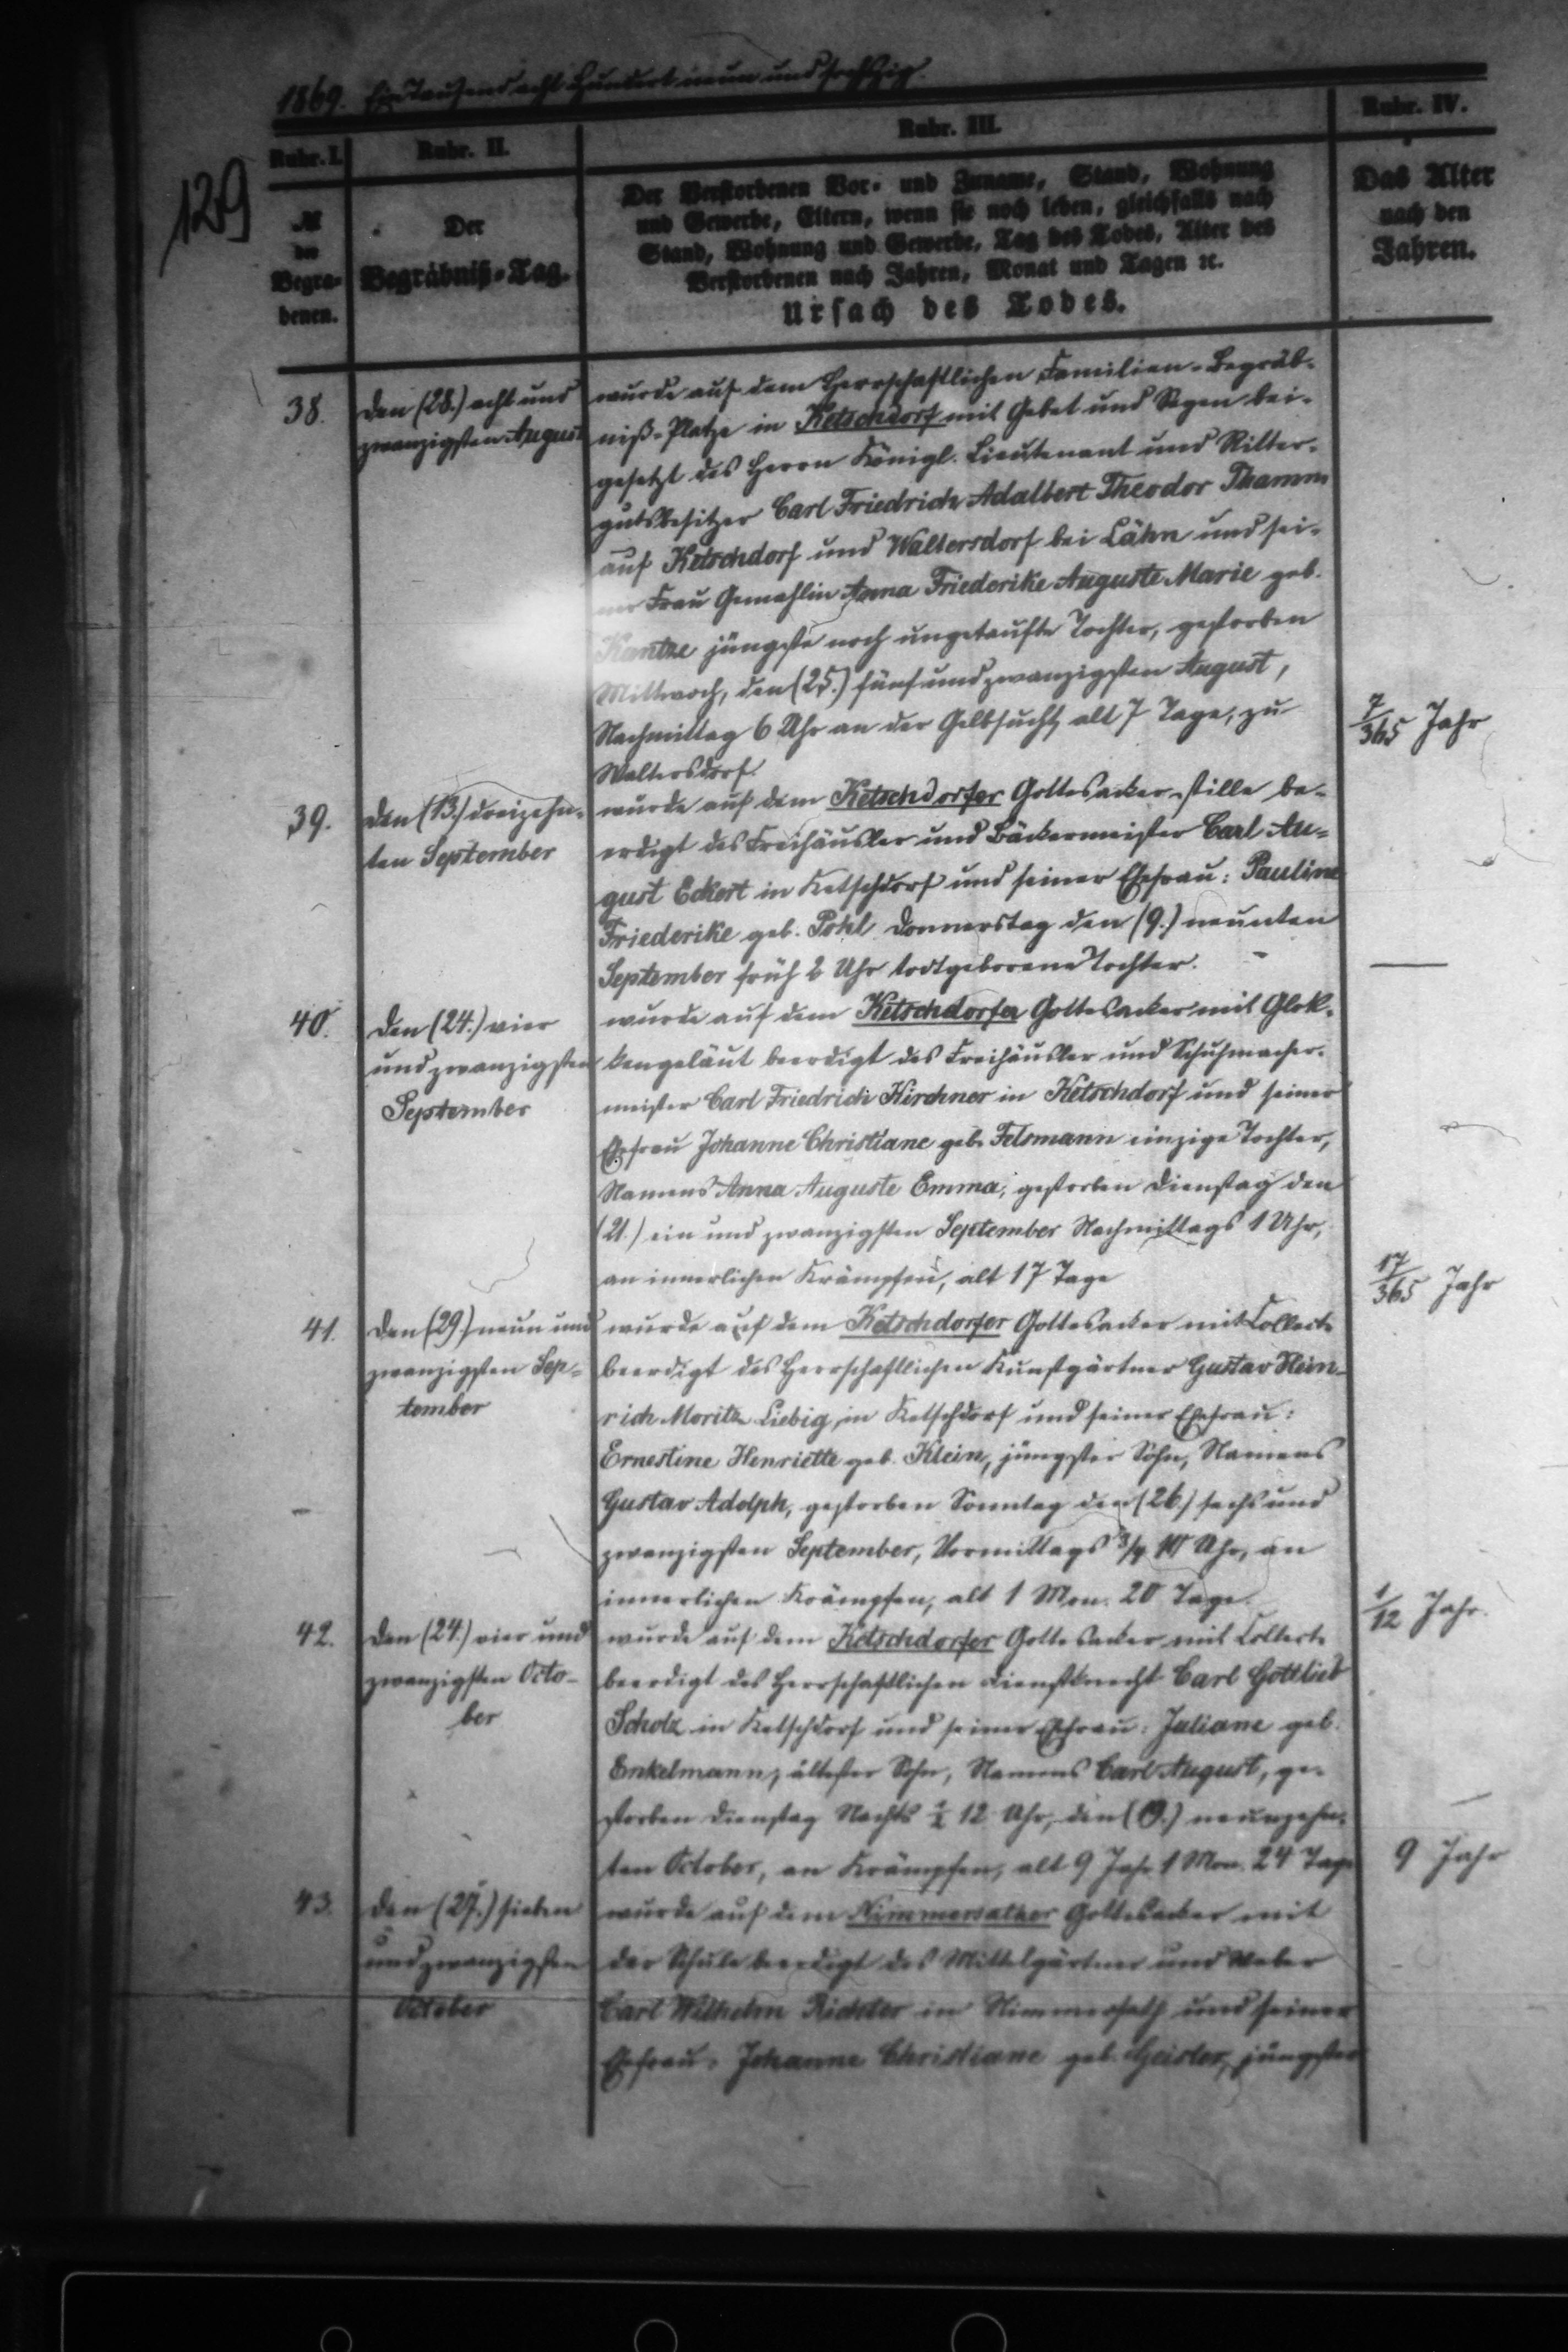 1869. Ein Tausend acht Hundert neun und sechszig.
129
Rubr. I.
Rubr. II.
Rubr. III.
Rubr. IV.
№
der
Begra-
benen.
Der
Begräbniß-Tag.
Der Verstorbenen Vor- und Zuname, Stand, Wohnung
und Gewerbe, Eltern, wenn sie noch leben, gleichfalls nach
Stand, Wohnung und Gewerbe, Tag des Todes, Alter des
Verstorbenen nach Jahren, Monat und Tagen ꝛc.
Ursach des Todes.
Das Alter
nach den
Jahren.
38.
den (28.) acht und
zwanzigsten August
wurde auf dem Herrschaftlichen Familien-Begräb-
niß-Platze in Ketschdorf mit Gebet und Segen bei-
gesetzt des Herrn Königl. Lieutenant und Ritter-
gutsbesitzer Carl Friedrich Adalbert Theodor Thamm
auf Ketschdorf und Waltersdorf bei Lähn und sei-
ner Frau Gemahlin Anna Friederike Auguste Marie geb.
jüngste noch ungetaufte Tochter, gestorben
Mittwoch, den (25.) fünf und zwanzigsten August,
Nachmittag 6 Uhr an der Gelbsucht, alt 7 Tage, zu
Waltersdorf.
7/365 Jahr
39.
den (13.) dreizehn-
ten September
wurde auf dem Ketschdorfer Gottesacker stille be-
erdigt des Freihäusler und Bäckermeister Carl Au-
gust Eckert in Ketschdorf und seiner Ehefrau: Pauline
Friederike geb. Pohl Donnerstag den (9.) neunten
September früh 2 Uhr todtgeborene Tochter.
—
40.
den (24.) vier
und zwanzigsten
September
wurde auf dem Ketschdorfer Gottesacker mit Glok-
kengeläut beerdigt des Freihäusler und Schuhmacher-
meister Carl Friedrich Kirchner in Ketschdorf und seiner
Ehefrau Johanne Christiane geb. Felsmann einzige Tochter,
Namens Anna Auguste Emma, gestorben Dienstag den
(21.) ein und zwanzigsten September Nachmittags 1 Uhr,
an innerlichen Krämpfen, alt 17 Tage
17/365 Jahr
41.
den (29.) neun und
zwanzigsten Sep-
tember
wurde auf dem Ketschdorfer Gottesacker mit Collecte
beerdigt des Herrschaftlichen Kunstgärtner Gustav Hein-
rich Moritz Liebig, in Ketschdorf und seiner Ehefrau:
Ernestine Henriette geb. Klein, jüngster Sohn, Namens
Gustav Adolph, gestorben Sonntag den (26.) sechs und
zwanzigsten September, Vormittags 3/4 10 Uhr, an
innerlichen Krämpfen, alt 1 Mon. 20 Tage.
1/12 Jahr.
42.
den (24.) vier und
zwanzigsten Octo-
ber
wurde auf dem Ketschdorfer Gottesacker mit Collecte
beerdigt des Herrschaftlichen Dienstknecht Carl Gottlieb
Scholz in Ketschdorf und seiner Ehefrau: Juliane geb.
Enkelmann, ältester Sohn, Namens Carl August, ge-
storben Dienstag Nachts 1/2 12 Uhr, den (19.) neunzehn-
ten October, an Krämpfen, alt 9 Jahr 1 Mon. 24 Tage
9 Jahr
43.
den (27.) sieben
und zwanzigsten
October
wurde auf dem Nimmersather Gottesacker mit
der Schule beerdigt des Mittelgärtner und Weber
Carl Wilhelm Richter in Nimmersath und seiner
Ehefrau: Johanne Christiane geb. Geisler, jüngster